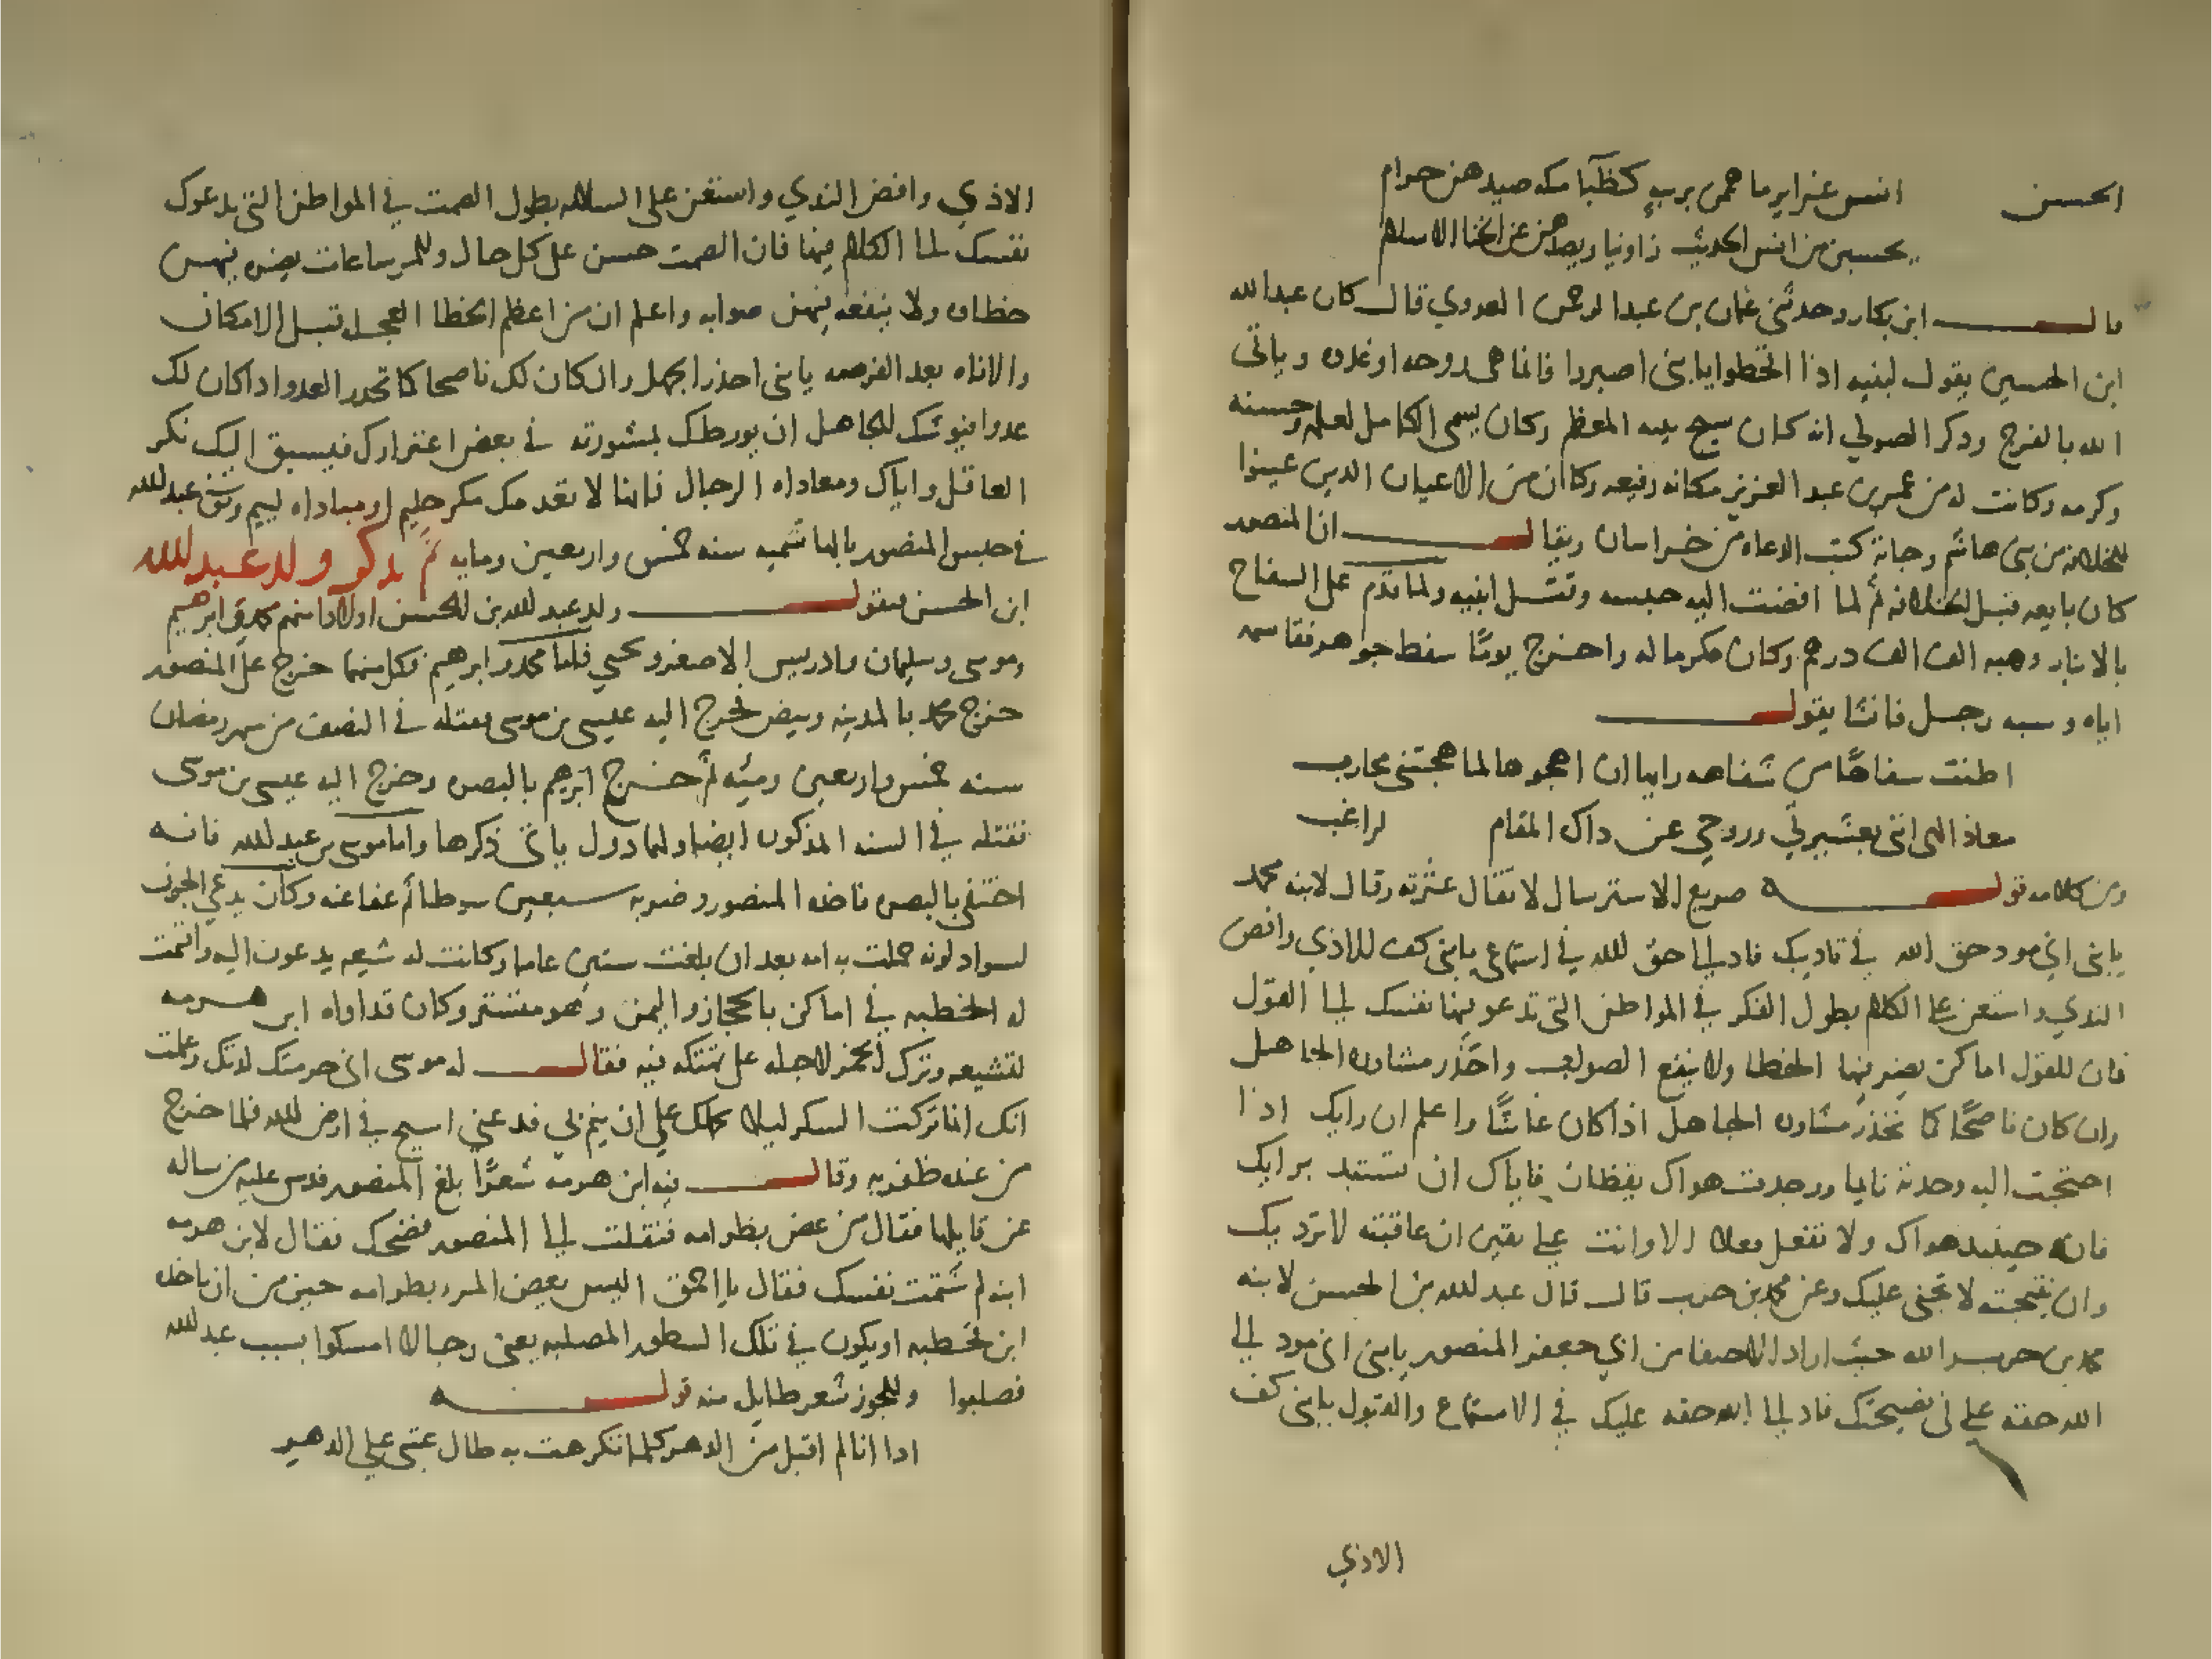 الحسن انس غراير ما هممن بريبة كظبآ مكه صيدهن حرام
يحسبن من انس الحديث زاونيا ويصدهن عن الخنا الاسلام
قال ابن بكار وحدثني عثمان بن عبد الرحمن العدوي قال كان عبدالله
ابن الحسين يقول لبنيه اذا اقحطوا يابني اصبروا فانما هي روحه او غدوه وياتي
الله بالفرج وذكر الصولي انه كان سيح بنيه المعظم وكان يسمى الكامل لعلمه وحسنه
وكرمه وكانت له من عمر بن عبد العزيز مكانه رفيعه وكان من الاعيان الدين عينوا
للخلافه من بني هاشم وجاته كتب الدعاه من خراسان ويقال ان المنصور
كان بايعه قبل الخلافه ثم لما افضت اليه حبسه وقتل ابنيه ولما قدم على السفاح
بالانبار وهبه الف الف درهم وكان مكرما له واخرج يومًا سفط جوهر فقاسمه
اياه وسبه رجل فانشا يقول
اظنت سفاهًا من سفاهه رايها ان اهجوها لما هجتني محارب
معاذ الهي انني بعشيرتي وروحي عن داك المقام لراغب
ومن كلامه قوله صريع الاسترسال لا تقال عثرته وقال لابنه محمد
يابني اني مود حق الله في تاديبك فاد الى حق الله في استماع يابني كف للاذي وافض
الندي واستعن على الكلام بطول الفكر في المواطن التي تدعو فيها نفسك الى القول
فان للقول اماكن يضر فيها الخطا ولا ينفع الصواب واحذر مشاوره الجاهل
وان كان ناصحًا كما تحذر مشاوره الجاهل اذا كان غاشًا واعلم ان رايك اذا
احتجت اليه وجدته نايما ووجدت هواك يقظان فاياك ان تستبد برايك
فانه حينيذ هواك ولا تفعل فعلا الا وانت على يقين ان عاقبته لا ترديك
وان نتيجته لا تجني عليك وعن محمد بن حرب قال قال عبد الله بن الحسن لابنه
محمد بن حرب الله حيث اراد الاختفا من ابي جعفر المنصور يابني اني مود الى
الله حقه علي في نصيحتك فاد الى الله حقه عليك في الاستماع والقبول يابني كف
الاذي
الاذي وافض الندي واستعن على السلامه بطول الصمت في المواطن التي تدعوك
نفسك الى الكلام فيها فان الصمت حسن على كل حال وللمرء ساعات يضره فيهن
خطاه ولا ينفعه فيهن صوابه واعلم ان من اعظم الخطا العجله قبل الامكان
والاناه بعد الفرصه يابني احذر الجهل وان كان لك ناصحا كما تحدر العدو اذا كان لك
عدوا فيوشك الجاهل ان يورطك بمشورته في بعض اغترارك فيسبق اليك نكر
العاقل واياك ومعاداه الرجال فانها لا تعدمك مكر حليم او مباداه ليم وتوفي عبد الله
في حبس المنصور بالهاشميه سنه خمس واربعين ومايه ثم يذكر ولد عبد الله
ابن الحسن فنقول ولد عبد الله بن الحسن اولادا منهم محمد وابرهيم
وموسى وسليمان وادريس الاصغر ويحيى فاما محمد وابرهيم فكل منهما خرج على المنصور
خرج محمد بالمدينه وبيض فخرج اليه عيسى بن موسى فقتله في النصف من شهر رمضان
سنه خمس واربعين وميه ثم خرج ابرهيم بالبصره وخرج اليه عيسى بن موسى
فقتله في السنه المذكوره ايضا ولهما دول ياتي ذكرها واما موسى بن عبد الله فانه
اختفى بالبصره فاخذه المنصور وضربه سبعين سوطا ثم عفا عنه وكان يدعي الجون
لسواد لونه حملت به امه بعد ان بلغت ستين عاما وكانت له شيعه يدعون اليه واقمت
له الخطبه في اماكن بالحجاز واليمن وهو مستتر وكان قد اواه ابن هرمه
لتشيعه وترك الخمر لاجله على تهتكه فيه فقال له موسى اني حرمتك لذتك وعلمت
انك انما تركت السكر ليلا يحملك علي ان ينم بي فدعني اسيح في ارض الله فلما خرج
من عنده ظفر به وقال فيه ابن هرمه شعرًا بلغ المنصور فدس عليه من ساله
عن قايلها فقال من عض بظر امه فنقلت الى المنصور فضحك فقال لابن هرمه
ابنه لم شتمت نفسك فقال يا احمق اليس بعض المرء بظر امه خير من ان ياخذه
ابن قحطبه او يكون في تلك السطور المصلبه يعني رجالا امسكوا بسبب عبد الله
فصلبوا وللجون شعر طايل منه قوله
اذا انا لم اقبل من الدهر كلما تكرهت به طال عتبي على الدهر